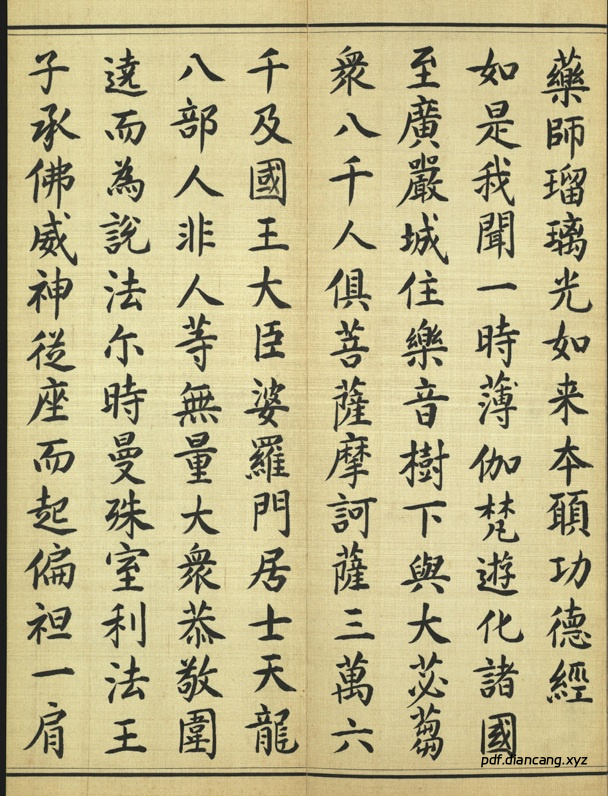 藥師瑠璃光如来本願功德經
如是我聞一時薄伽梵遊化諸國
至廣嚴城住樂音樹下與大苾蒭
衆八千人俱菩薩摩訶薩三萬六
千及國王大臣婆羅門居士天龍
八部人非人等無量大衆恭敬圍
遶而為說法尓時曼殊室利法王
子承佛威神從座而起偏袒一肩
pdf.diancang.xyz